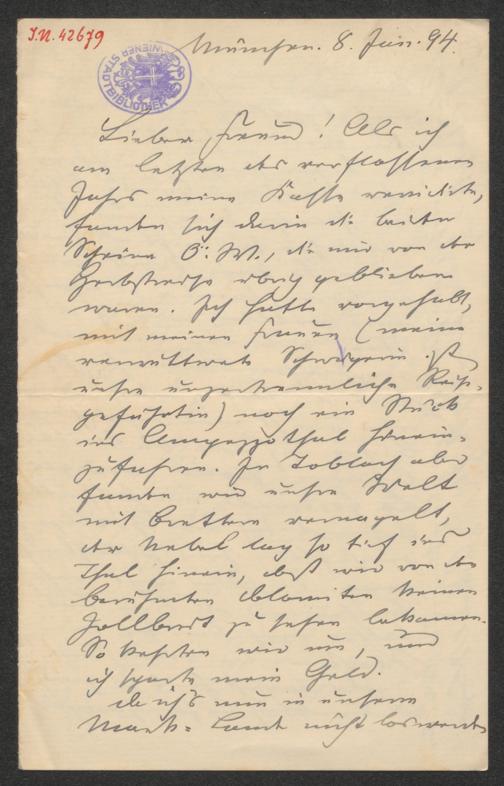 I.N. 42679
WIENER STADTBIBLIOTHEK
München. 8. Jan. 94.
Lieber Freund! Als ich
am letzten des verflossenen
Jahrs meine Kasse revidirte,
fanden sich darin die beiden
Scheine Ö. W., die mir von der
Herbstreise übrig geblieben
waren. Ich hatte vorgehabt,
mit meinen Frauen (meine
verwittwete Schwägerin ist
unsre unzertrennliche Reise-
gefährtin) noch ein Stück
ins Ampezzothal hinein-
zufahren. In Toblach aber
fanden wir unsre Welt
mit Brettern vernagelt,
der Nebel lag so tief ins
Thal hinein, daß wir von den
berühmten Dolomiten keinen
Zollbreit zu sehen bekamen.
So kehrten wir um, und
ich sparte mein Geld.
Da ich's nun in unserm
Mark-Lande nicht loswerden